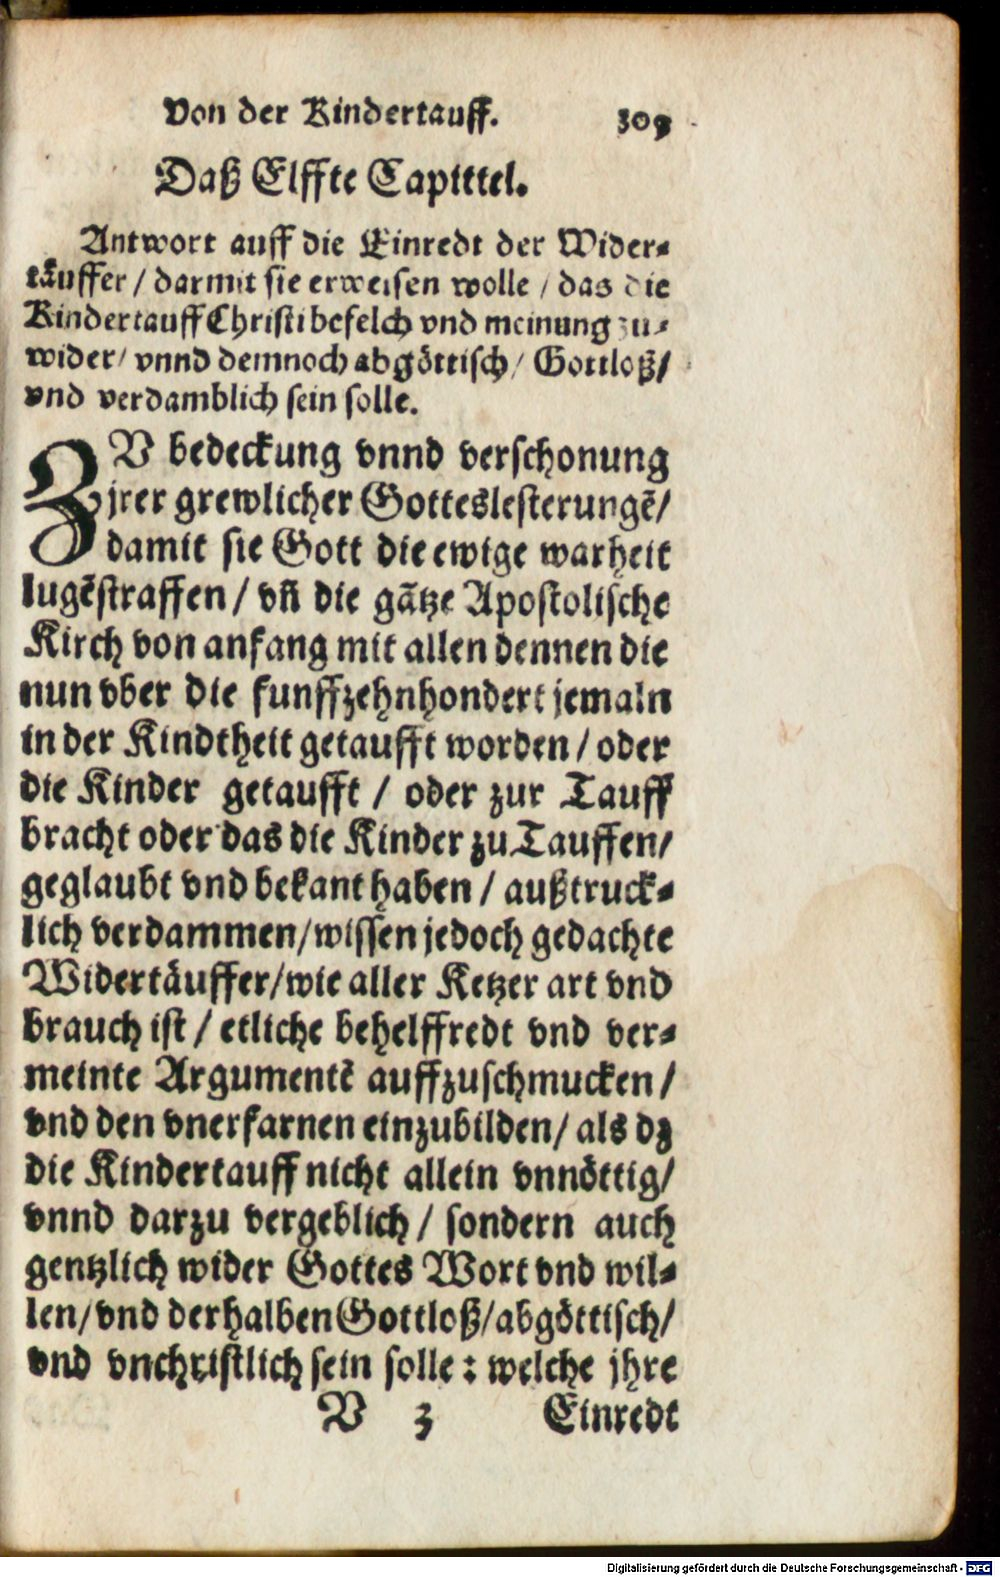 Von der Kindertauff. 309
Daß Elffte Capittel.
Antwort auff die Einredt der Wider⸗
täuffer / darmit sie erweisen wolle / das die
Kindertauff Christi befelch vnd meinung zu⸗
wider / vnnd demnoch abgöttisch / Gottloß /
vnd verdamblich sein solle.
ZV bedeckung vnnd verschonung
jrer grewlicher Gotteslesterungē /
damit sie Gott die ewige warheit
lugēstraffen / vñ die gātze Apostolische
Kirch von anfang mit allen dennen die
nun vber die funffzehnhondert jemaln
in der Kindtheit getaufft worden / oder
die Kinder getaufft / oder zur Tauff
bracht oder das die Kinder zu Tauffen /
geglaubt vnd bekant haben / außtruck⸗
lich verdammen / wissen jedoch gedachte
Widertäuffer / wie aller Ketzer art vnd
brauch ist / etliche behelffredt vnd ver⸗
meinte Argumentē auffzuschmucken /
vnd den vnerfarnen einzubilden / als dz
die Kindertauff nicht allein vnnöttig /
vnnd darzu vergeblich / sondern auch
gentzlich wider Gottes Wort vnd wil⸗
len / vnd derhalben Gottloß / abgöttisch /
vnd vnchristlich sein solle : welche jhre
V 3 Einredt
Digitalisierung gefördert durch die Deutsche Forschungsgemeinschaft - DFG